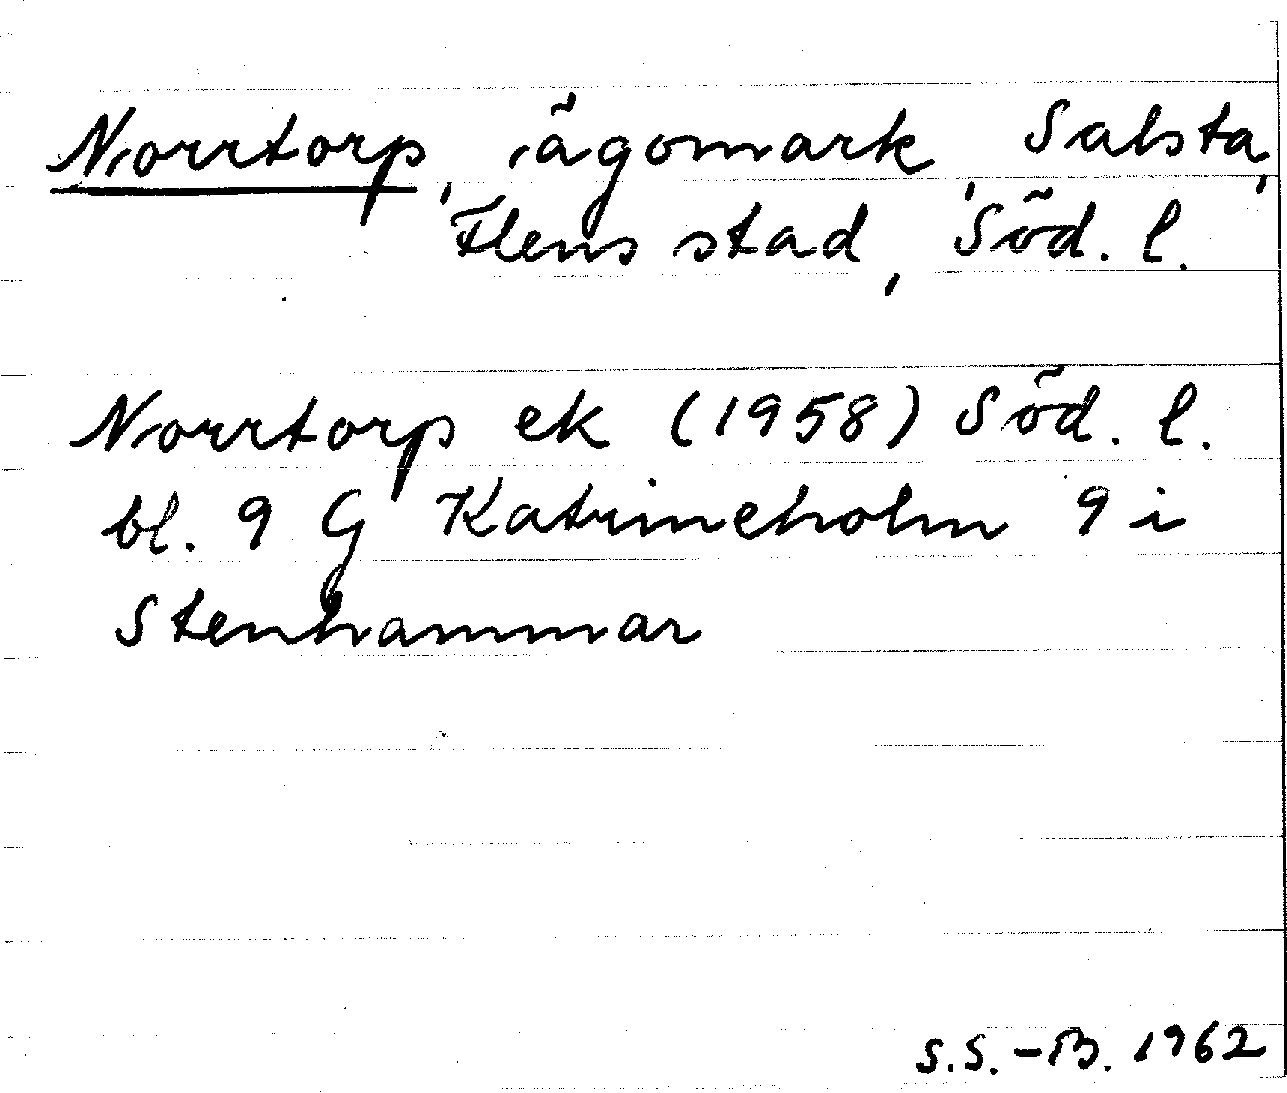 Norrtorp, ägomark, Salsta,
Flens stad, Söd. l.
Norrtorp ek (1958) Söd. l.
bl. 9 G Katrineholm 9 i
Stenhammar
S.S.-B. 1962